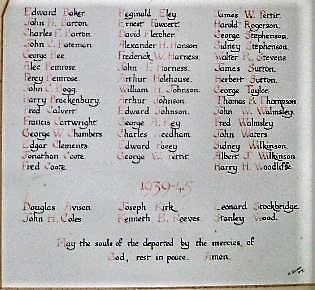 Edward Baker Reginald Eley James W. Pettit.
John H. Barton Ernest Fawcett. Harold Rogerson.
Charles F. Barton David Fletcher. George Stephenson.
John C. Bateman Alexander H. Hanson Sidney Stephenson.
George Bee Frederick W. Harness. Walter R. Stevens
Alec Bemrose John Harness. James Sutton.
Percy Bemrose Arthur Holehouse. Herbert Sutton.
John C. Bogg. William H. Johnson. George Taylor.
Harry Brackenbury. Arthur Johnson. Thomas R. Thompson
Fred Calvert Edward Johnson. John W. Walmsley.
Francis Cartwright George Fred Walmsley
George W. Chambers Charles Needham. John Waters
Edgar Clements Edward Sidney Wilkinson.
Jonathan Coote. George W. Pettit Albert J. Wilkinson
Fred Coote. Harry H. Woodliffe
1939-45
Douglas Avison. Joseph Kirk. Leonard Stockbridge.
John H. Coles Kenneth B. Reeves. Stanley Wood.
May the souls of the departed by the mercies of
God, rest in peace. Amen.